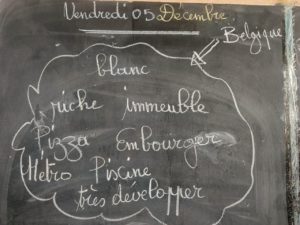 Vendredi 05 Décembre
Belgique
blanc
riche immeuble
Pizza Embourger
Métro Piscine
très développer